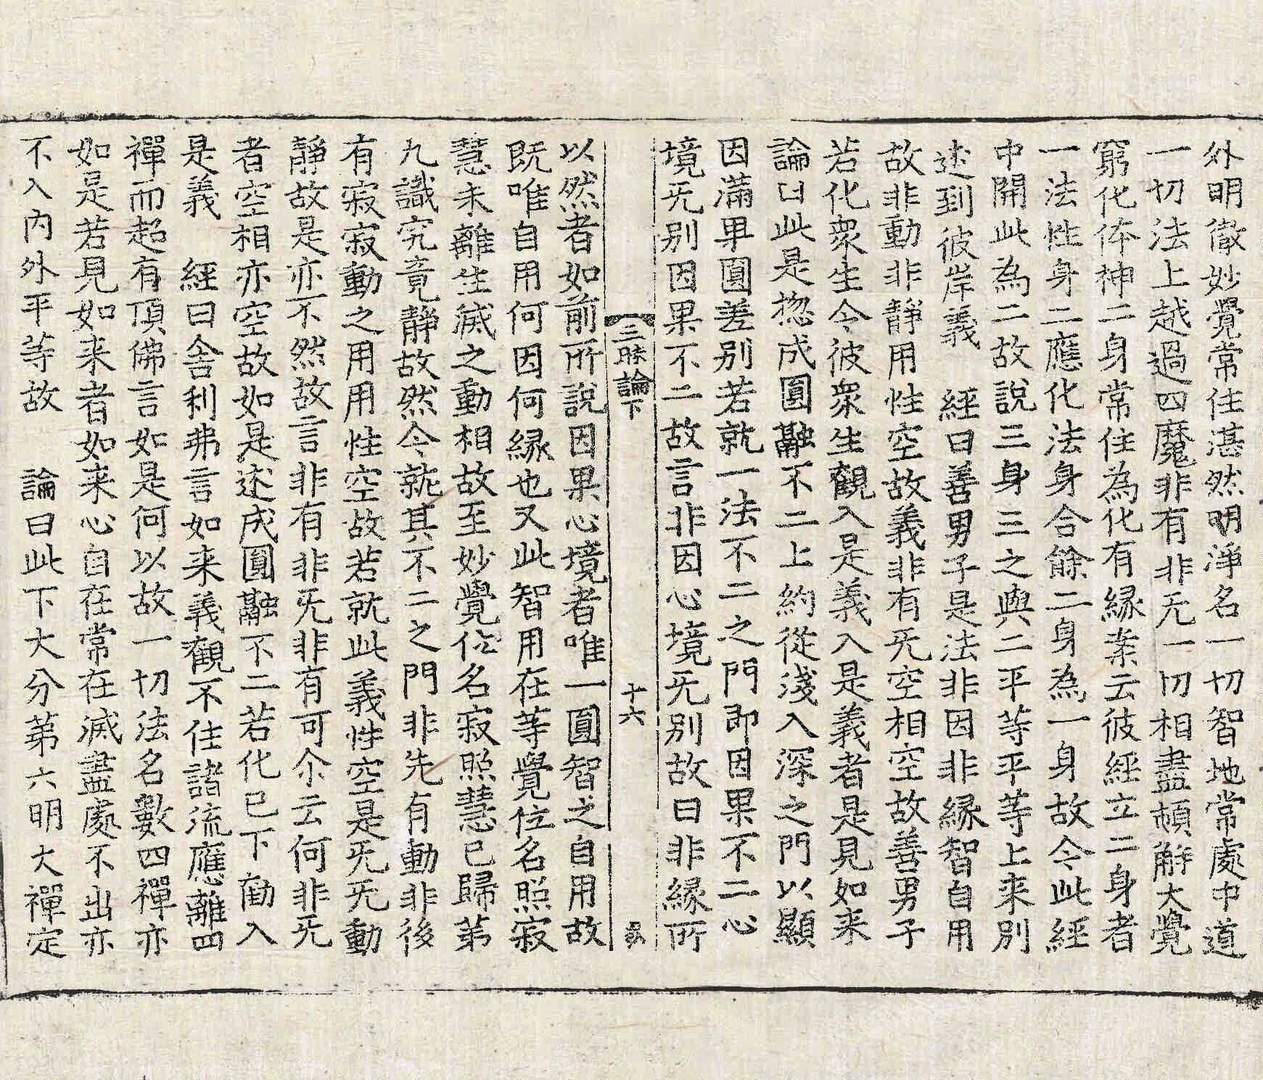 外明徹妙覺常住湛然明淨名一切智地常處中道
一切法上越過四魔非有非无一切相盡頓解大覺
窮化体神二身常住為化有縁案云彼經立二身者
一法性身二應化法身合餘二身為一身故今此經
中開此為二故說三身三之與二平等平等上来別
述到彼岸義　經曰善男子是法非因非縁智自用
故非動非靜用性空故義非有无空相空故善男子
若化衆生令彼衆生觀入是義入是義者是見如来
論曰此是惣成圓融不二上約從淺入深之門以顯
因滿果圓差別若就一法不二之門即因果不二心
境无別因果不二故言非因心境无別故曰非縁所
三昧論下　十六
以然者如前所說因果心境者唯一圓智之自用故
既唯自用何因何縁也又此智用在等覺位名照寂
慧未離生滅之動相故至妙覺位名寂照慧已歸第
九識究竟靜故然今就其不二之門非先有動非後
有寂寂動之用用性空故若就此義性空是无无動
靜故是亦不然故言非有非无非有可尒云何非无
者空相亦空故如是述成圓融不二若化已下勸入
是義　經曰舍利弗言如来義觀不住諸流應離四
禪而超有頂佛言如是何以故一切法名數四禪亦
如是若見如来者如来心自在常在滅盡處不出亦
不入內外平等故　論曰此下大分第六明大禪定